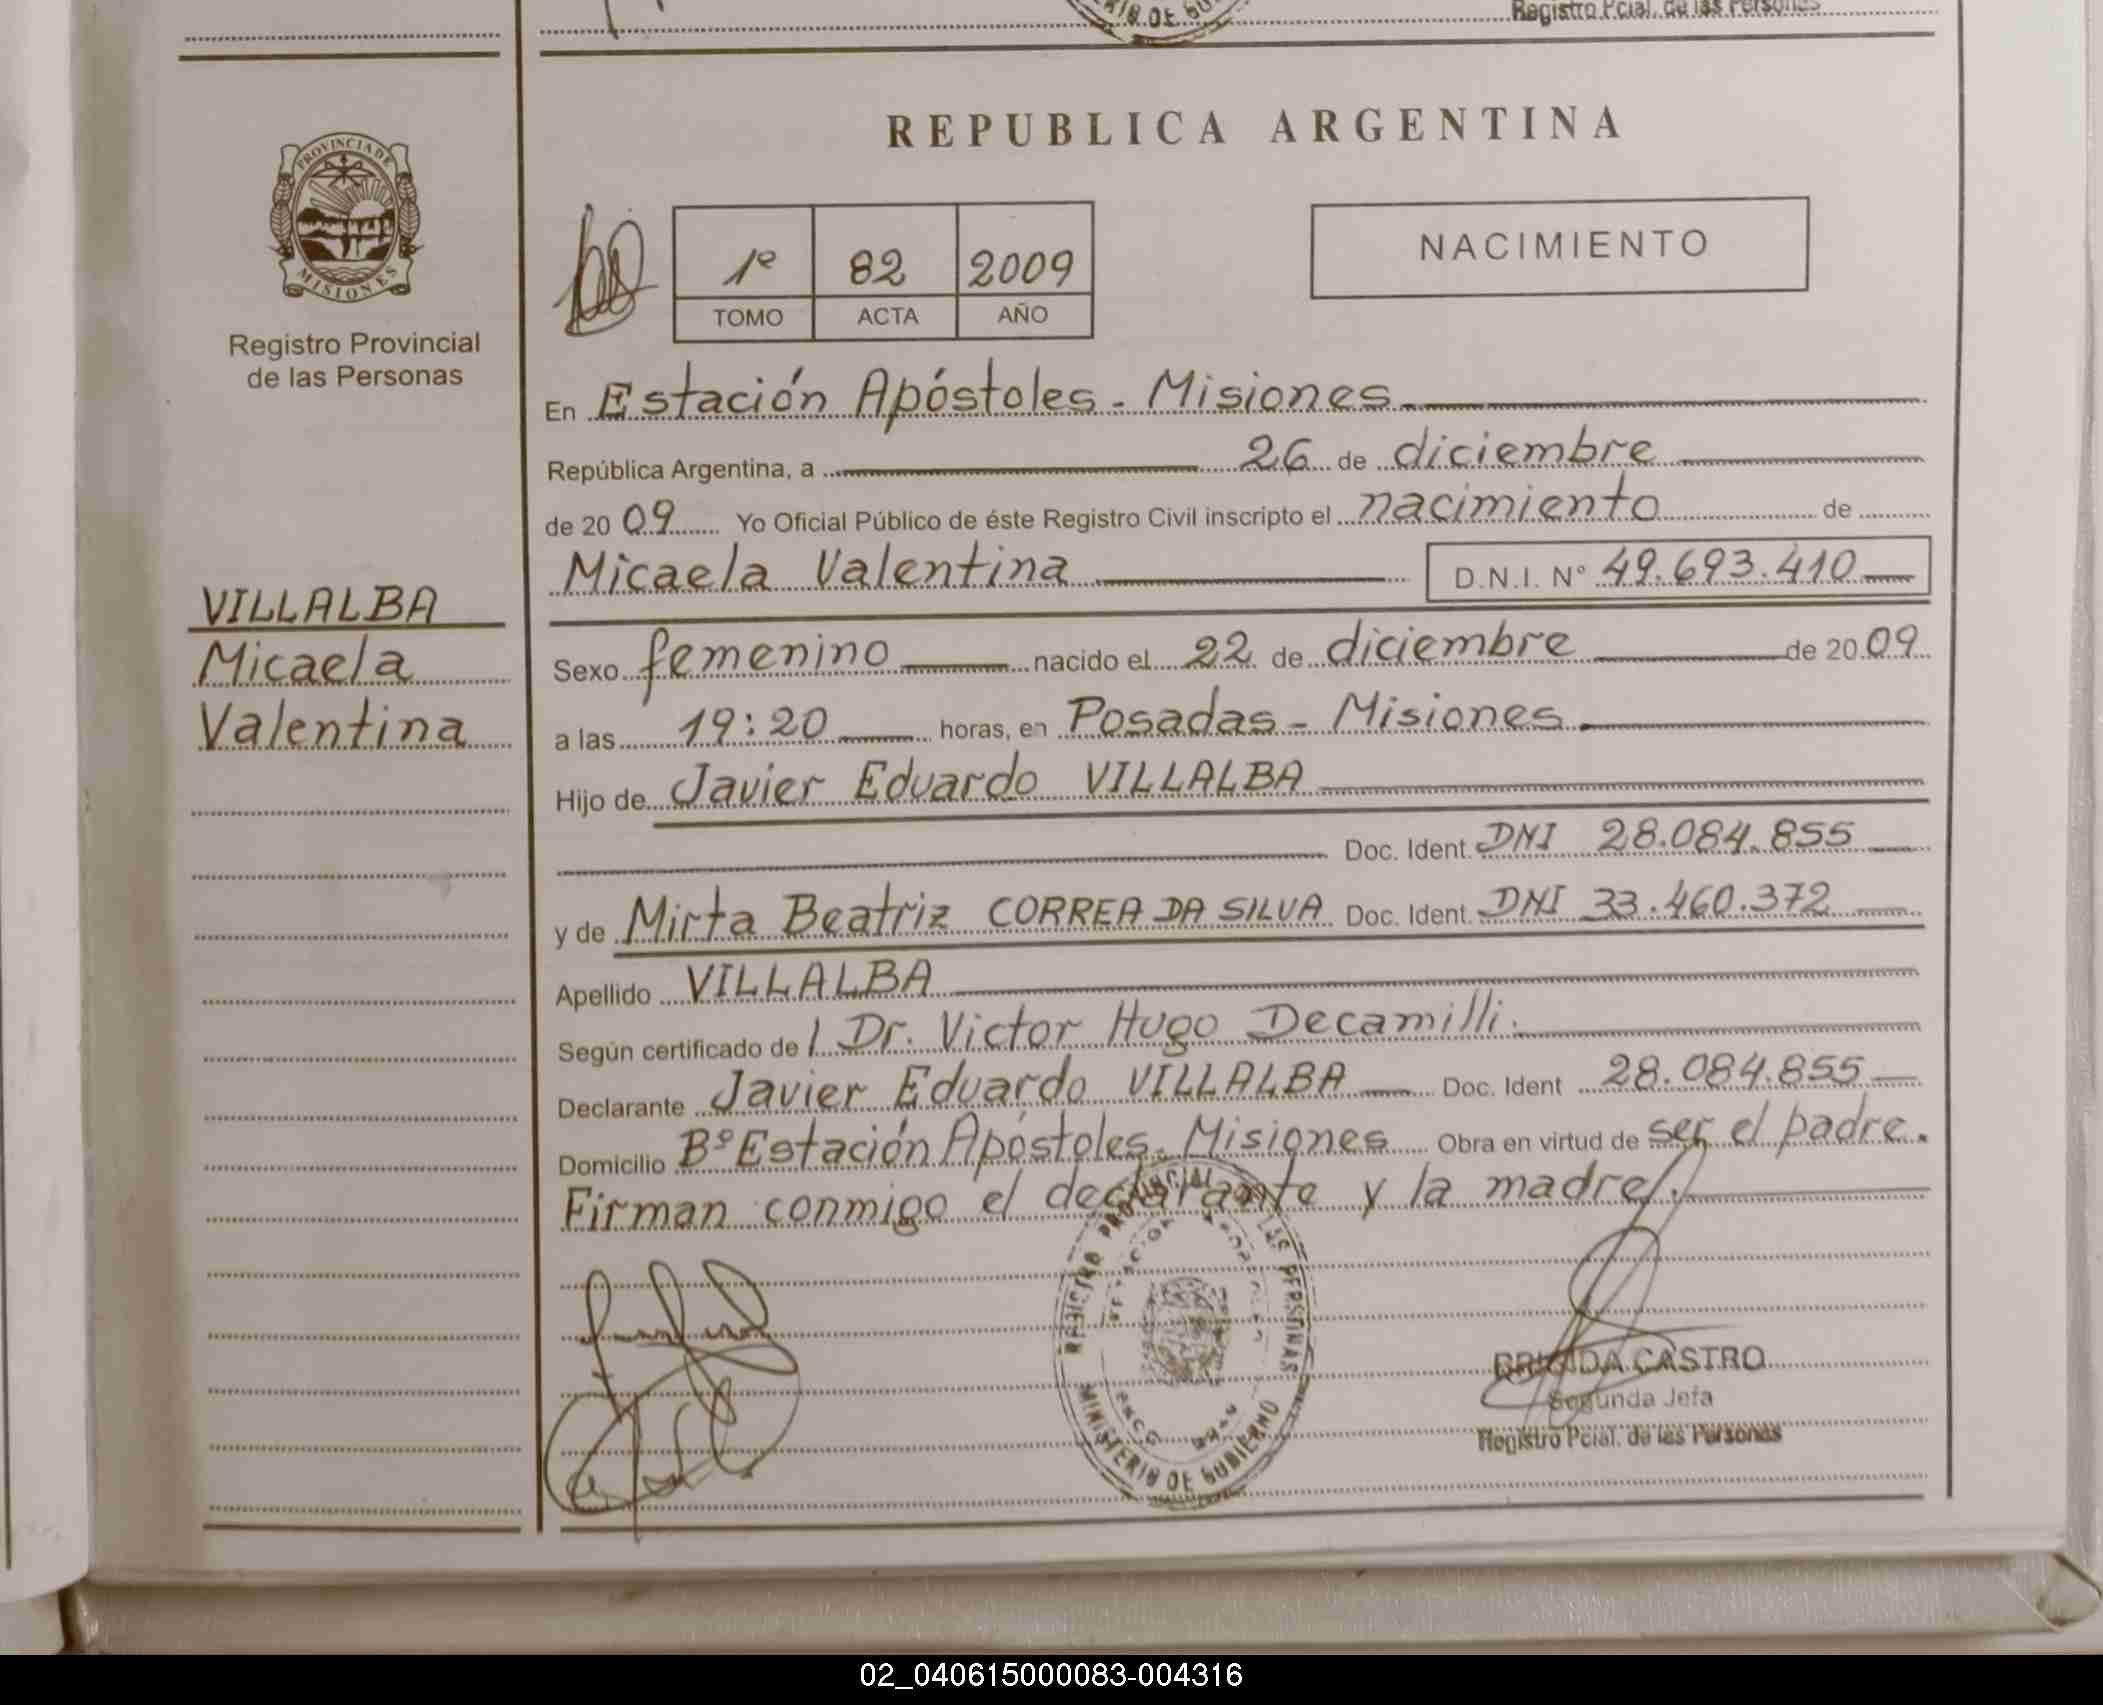 Registro Pcial. de las Personas
RIO DE GO
REPUBLICA ARGENTINA
PROVINCIA DE
MISIONES
Registro Provincial
de las Personas
1º 82 2009
TOMO ACTA AÑO
NACIMIENTO
En Estación Apóstoles - Misiones
República Argentina, a 26 de diciembre
de 2009 Yo Oficial Público de éste Registro Civil inscripto el nacimiento de
Micaela Valentina D.N.I. Nº 49.693.410
VILLALBA
Micaela
Valentina
Sexo femenino nacido el 22 de diciembre de 2009
a las 19:20 horas, en Posadas - Misiones
Hijo de Javier Eduardo VILLALBA
Doc. Ident. DNI 28.084.855
y de Mirta Beatriz CORREA DA SILVA Doc. Ident. DNI 33.460.372
Apellido VILLALBA
Según certificado de l Dr. Victor Hugo Decamilli.
Declarante Javier Eduardo VILLALBA Doc. Ident 28.084.855
Domicilio Bº Estación Apóstoles - Misiones Obra en virtud de ser el padre.
Firman conmigo el declarante y la madre.
REGISTRO PROVINCIAL DE LAS PERSONAS
MINISTERIO DE GOBIERNO
BRIGIDA CASTRO
Segunda Jefa
Registro Pcial. de las Personas
02_040615000083-004316